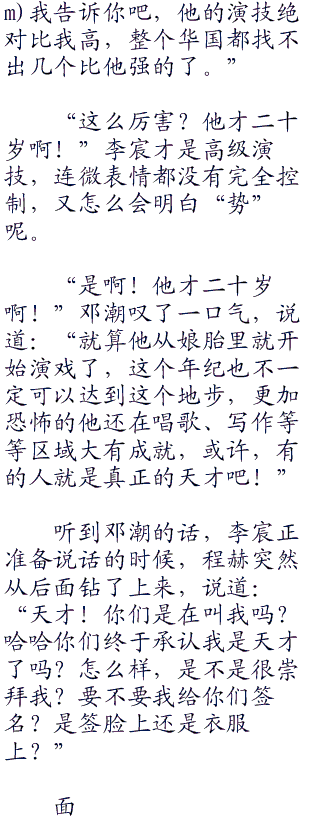 m)我告诉你吧，他的演技绝
对比我高，整个华国都找不
出几个比他强的了。”
“这么厉害？他才二十
岁啊！”李宸才是高级演
技，连微表情都没有完全控
制，又怎么会明白“势”
呢。
“是啊！他才二十岁
啊！”邓潮叹了一口气，说
道：“就算他从娘胎里就开
始演戏了，这个年纪也不一
定可以达到这个地步，更加
恐怖的他还在唱歌、写作等
等区域大有成就，或许，有
的人就是真正的天才吧！”
听到邓潮的话，李宸正
准备说话的时候，程赫突然
从后面钻了上来，说道：
“天才！你们是在叫我吗？
哈哈你们终于承认我是天才
了吗？怎么样，是不是很崇
拜我？要不要我给你们签
名？是签脸上还是衣服
上？”
面